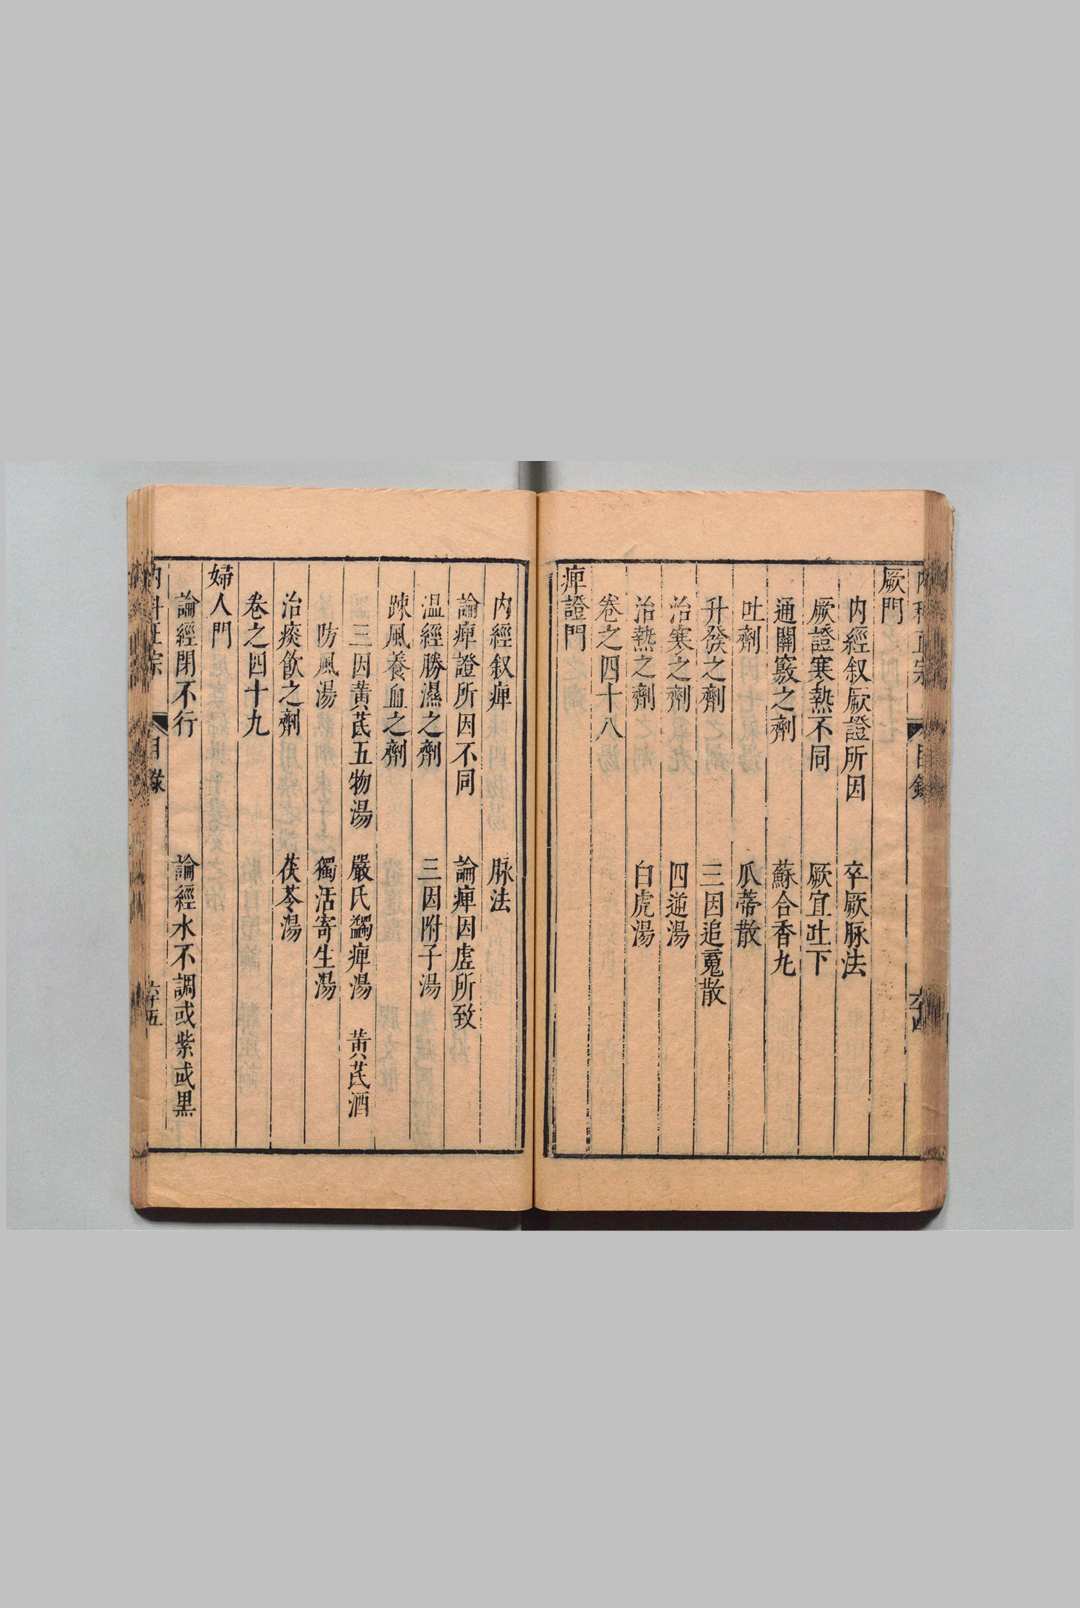 厥門
内經叙厥證所因　卒厥脉法
厥證寒熱不同　厥宜吐下
通關竅之劑　蘇合香丸
吐劑　瓜蒂散
升發之劑　三因追䰟散
治寒之劑　四逆湯
治熱之劑　白虎湯
卷之四十八
痺證門
内經叙痺　脉法
論痺證所因不同　論痺因虛所致
温經勝濕之劑　三因附子湯
踈風養血之劑
三因黄芪五物湯　嚴氏蠲痺湯　黄芪酒
防風湯　獨活寄生湯
治痰飲之劑　茯苓湯
卷之四十九
婦人門
論經閉不行　論經水不調或紫或黒
目録
六十五